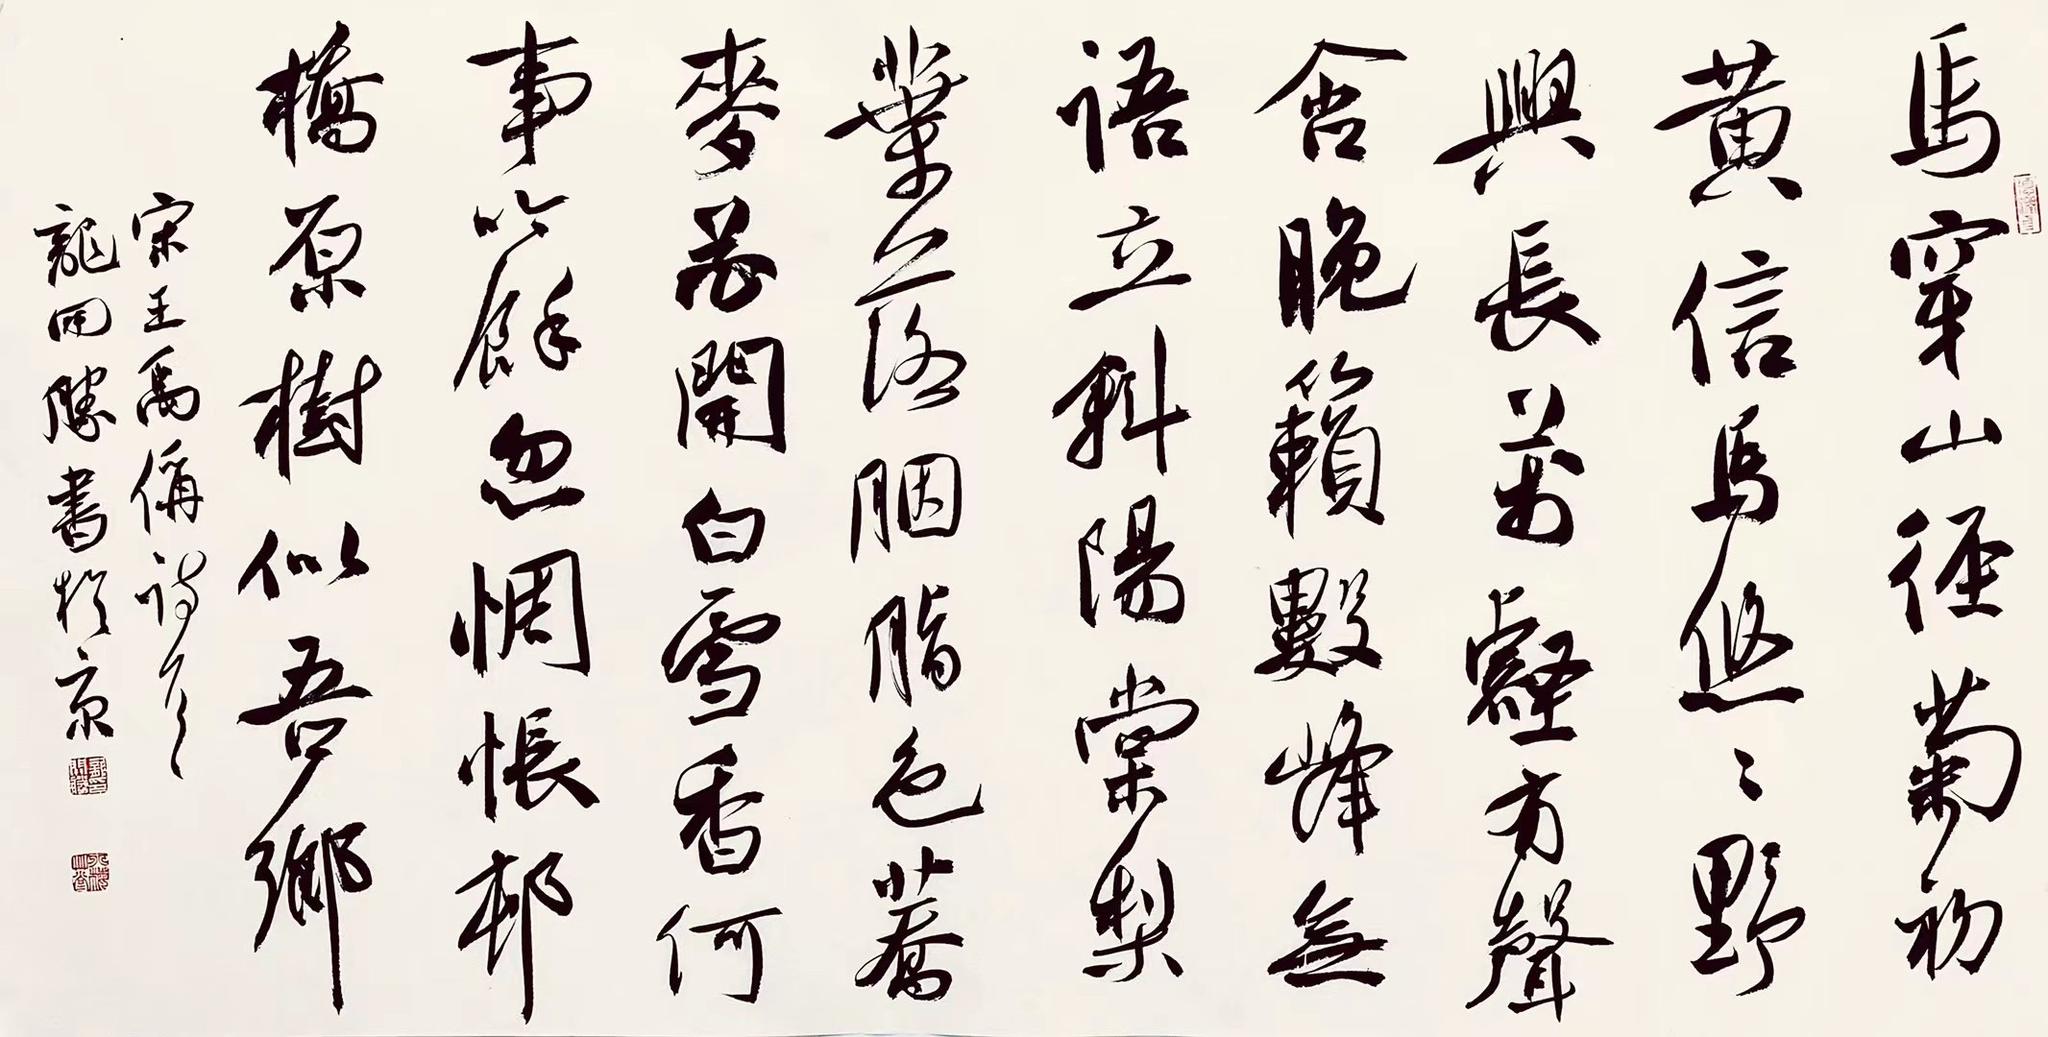 馬穿山徑菊初
黃信馬悠〻野
興長萬壑有聲
含晚籟數峰無
語立斜陽棠梨
葉落胭脂色蕎
麥花開白雪香何
事吟餘忽惆悵邨
橋原樹似吾鄉
宋王禹偁詩一首
龍開勝書於京